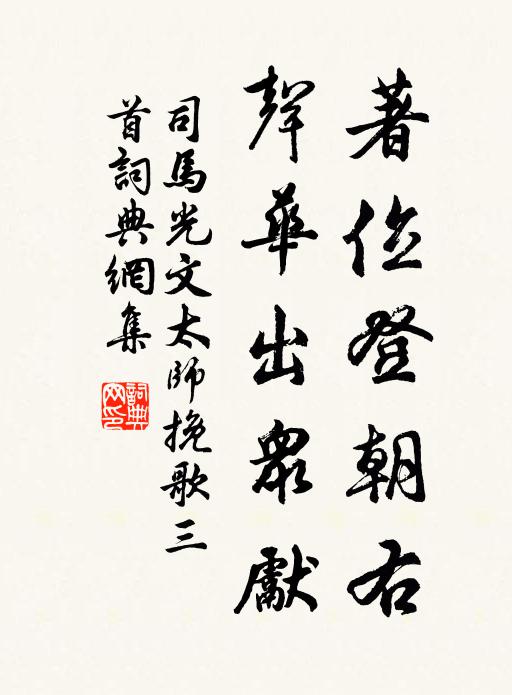 著位登朝右
聲華出衆獻
司馬光文太師挽歌三
首詞典網集
詞典
网印